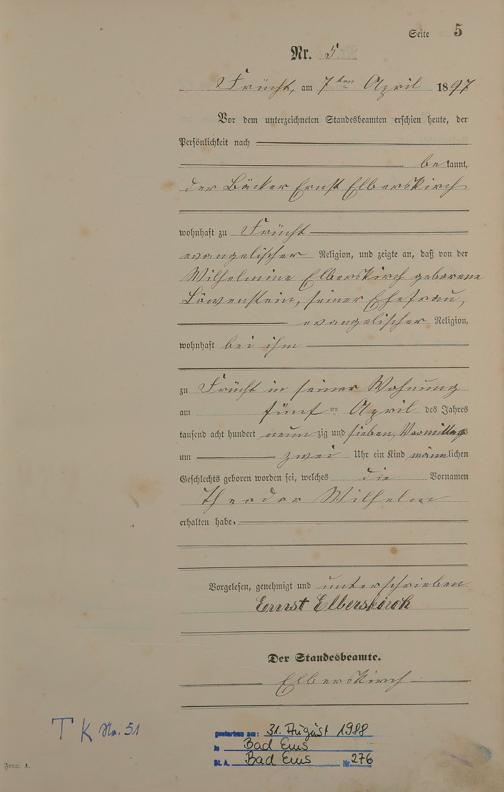 Seite 5
Nr. 5
Frücht, am 7ten April 1897
Vor dem unterzeichneten Standesbeamten erschien heute, der
Persönlichkeit nach
bekannt,
der Bäcker Ernst Elberskirch
wohnhaft zu Frücht
evangelischer Religion, und zeigte an, daß von der
Wilhelmine Elberskirch geborene
Löwenstein, seiner Ehefrau,
evangelischer Religion,
wohnhaft bei ihm
zu Frücht in seiner Wohnung
am fünften April des Jahres
tausend acht hundert neunzig und sieben, Vormittags
um zwei Uhr ein Kind männlichen
Geschlechts geboren worden sei, welches die Vornamen
Theodor Wilhelm
erhalten habe.
Vorgelesen, genehmigt und unterschrieben
Ernst Elberskirch
Der Standesbeamte.
Elberskirch
TK No. 51
gestorben am: 31. August 1988
in Bad Ems
St. A. Bad Ems Nr. 276
Form. A.